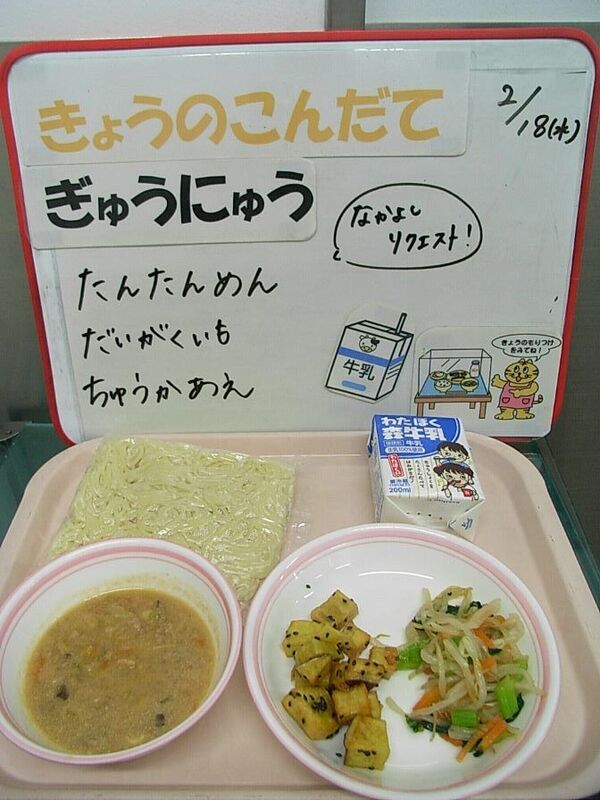 きょうのこんだて
2/18(水)
ぎゅうにゅう
なかよし
リクエスト!
たんたんめん
だいがくいも
ちゅうかあえ
牛乳
きょうのもりつけ
をみてね!
わたぼく
森牛乳
牛乳
200ml